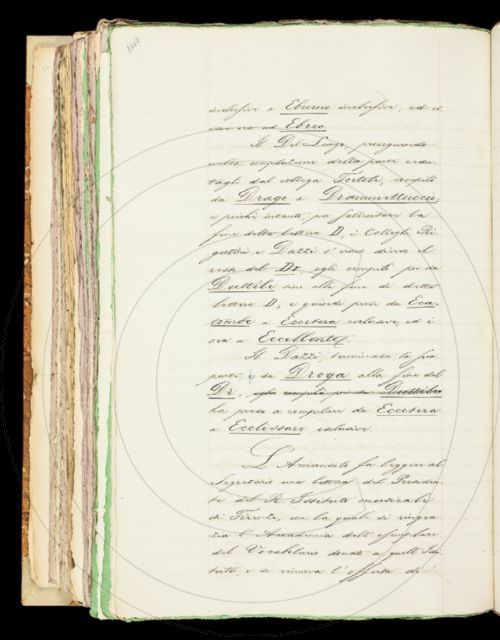 inclusive a Eburno inclusive, ed è
ora ad Ebreo
Il Del Lungo, proseguendo
nella compilazione della parte cedu-
tagli dal collega Tortoli, compilò
da Drago a Drammettuccio,
e perchè intanto, per sollecitare la
fine della lettera D, i Colleghi Ri-
gutini e Dazzi s'eran divisi il
resto del Dr, egli compilò poi da
Duttile sino alla fine di detta
lettera D, e quindi prese da Eca-
tombe a Eccetera esclusive, ed è
ora a Eccellente.
Il Dazzi, terminata la sua
parte, da Droga alla fine del
Dr,
ha preso a compilare da Eccetera
a Ecclissare esclusive.
L'Arciconsolo fa leggere al
Segretario una lettera del Presiden-
te del R. Istituto musicale
di Firenze, con la quale si ringra-
zia l'Accademia dell'esemplare
del Vocabolario donato a quell'Isti-
tuto, e si rinnova l'offerta di